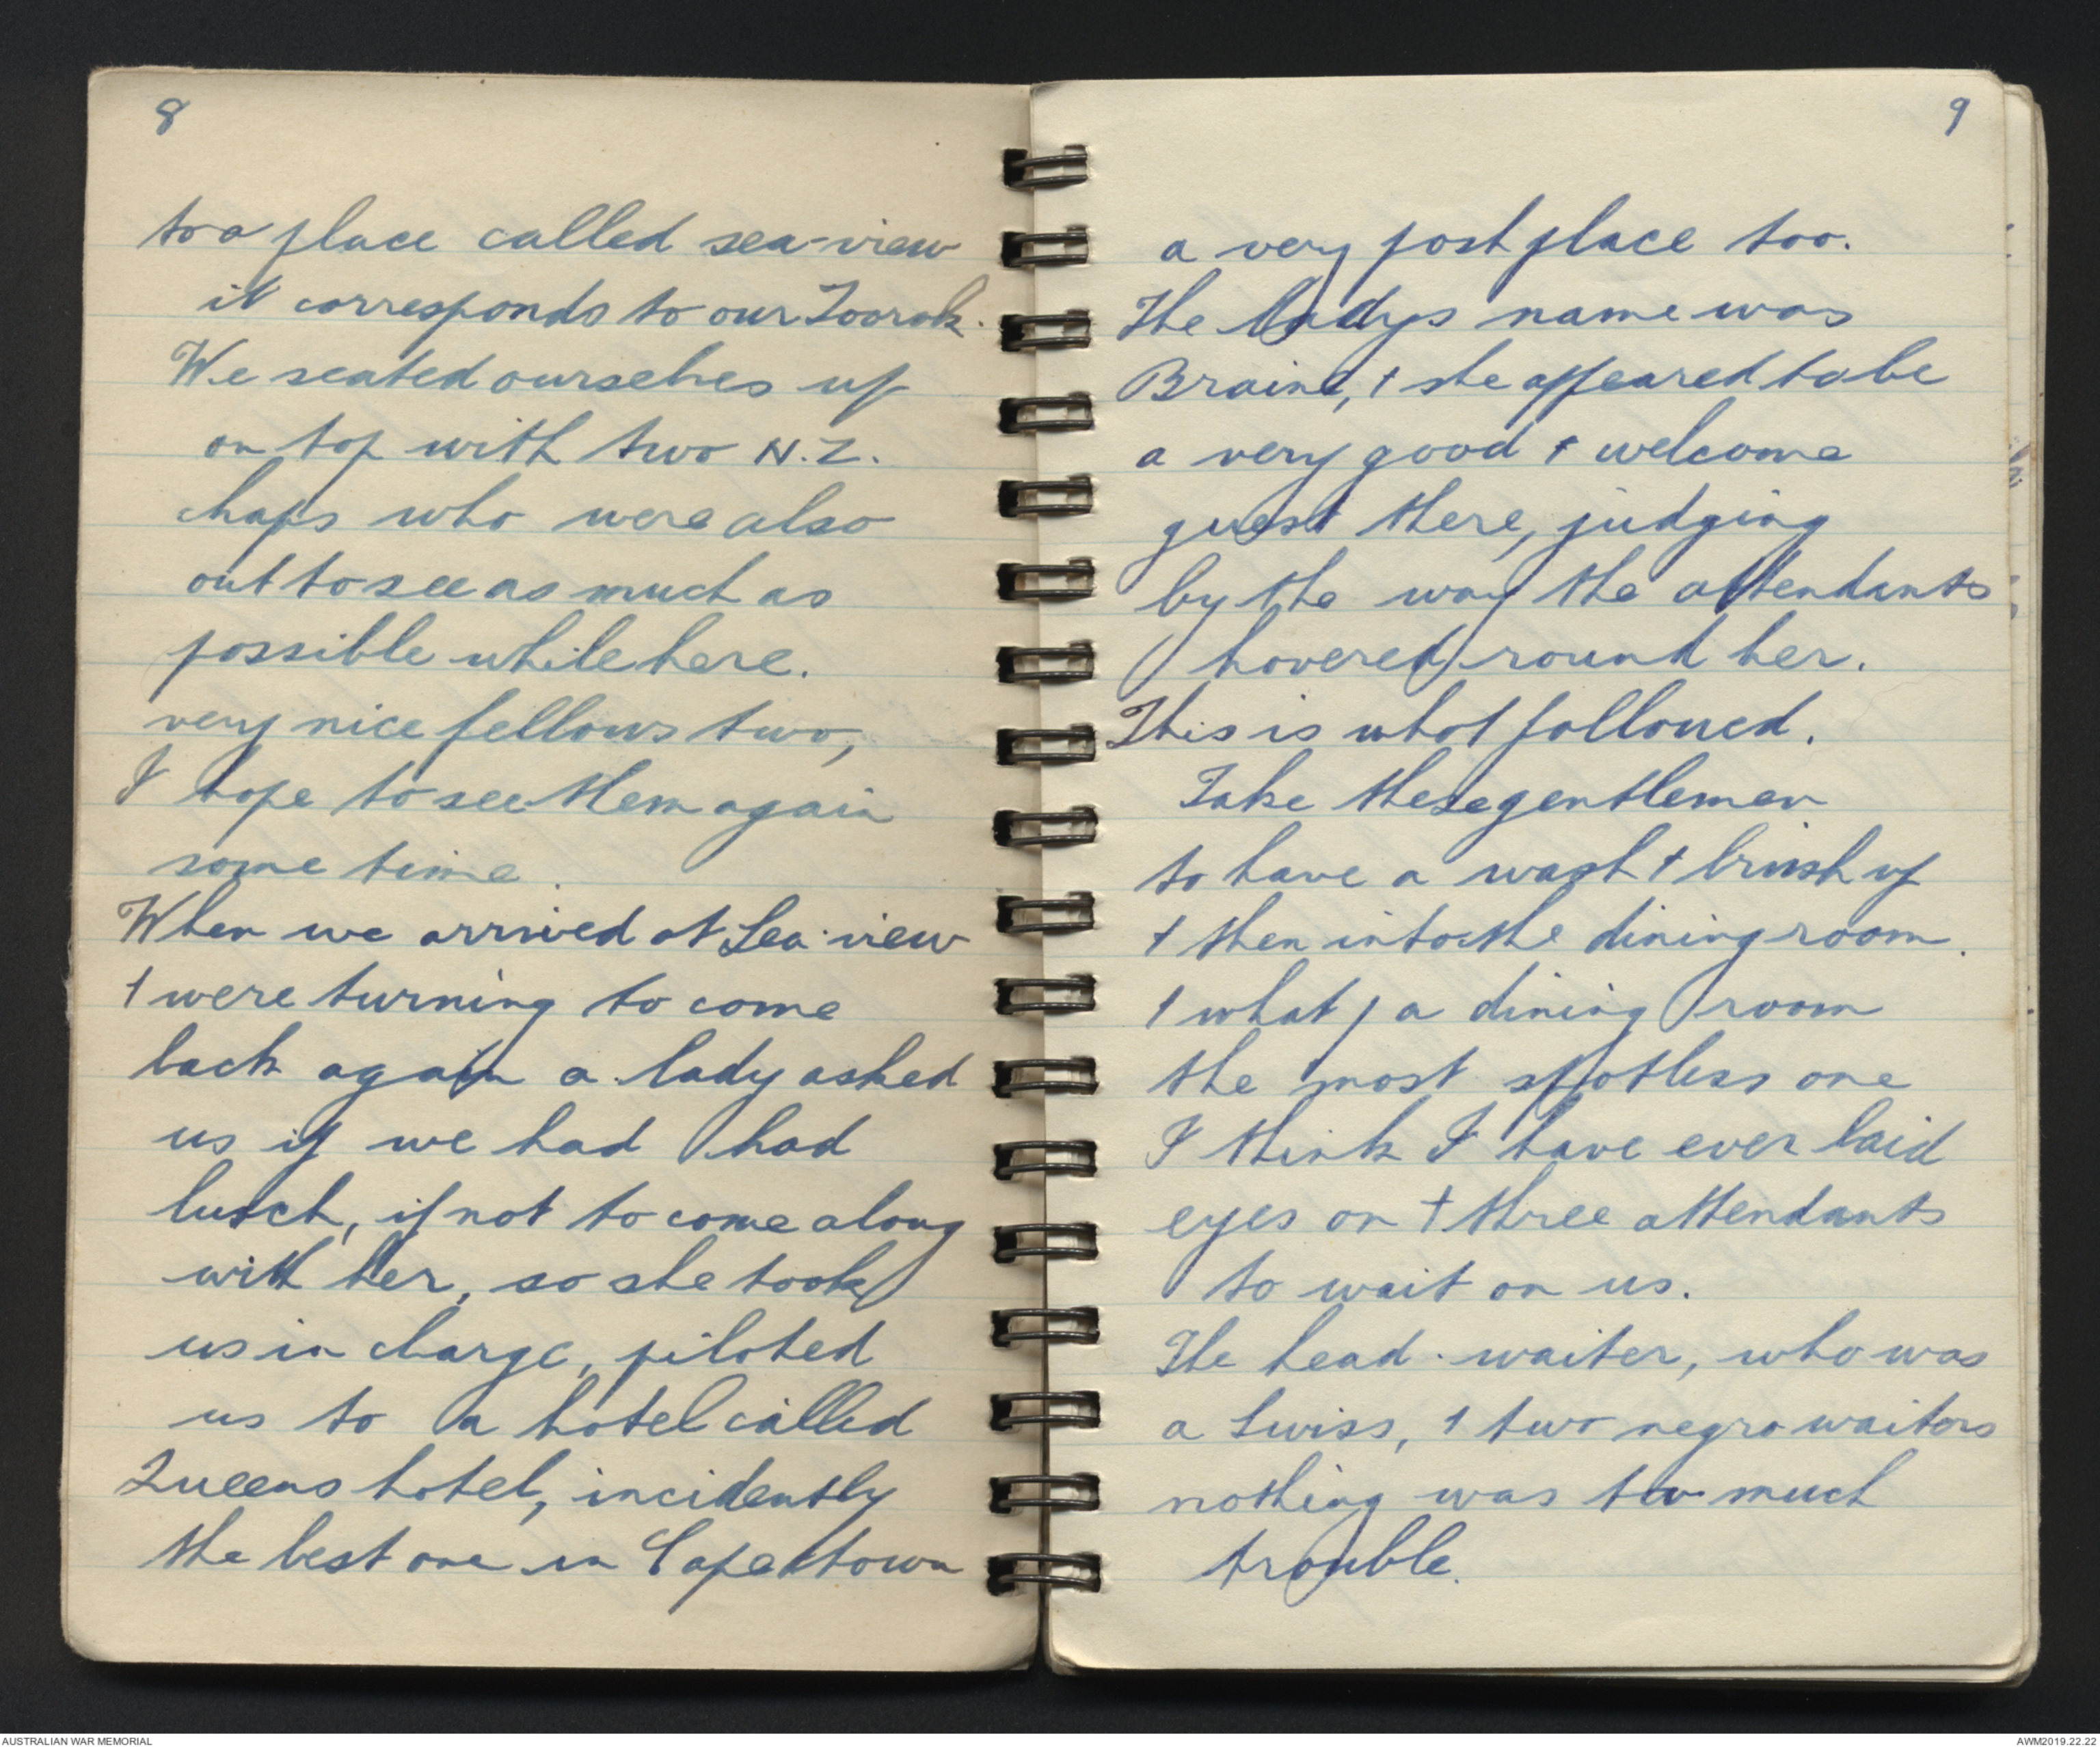 8
to a place called sea-view
it corresponds to our Toorak.
We seated ourselves up
on top with two N.Z.
chaps who were also
out to see as much as
possible while here.
very nice fellows two,
I hope to see them again
some time.
When we arrived at Sea-view
+ were turning to come
back again a lady asked
us if we had had
lunch, if not to come along
with her, so she took
us in charge, piloted
us to a hotel called
Queens hotel, incidently
the best one in Capetown
9
a very posh place too.
The ladys name was
Braine, + she appeared to be
a very good + welcome
guest there, judging
by the way the attendants
hovered round her.
This is what followed.
Take these gentlemen
to have a wash + brush up
+ then into the dining room.
+ what a dining room
the most spotless one
I think I have ever laid
eyes on + three attendants
to wait on us.
The head-waiter, who was
a Swiss, + two negro waiters
nothing was too much
trouble.
AUSTRALIAN WAR MEMORIAL
AWM2019.22.22